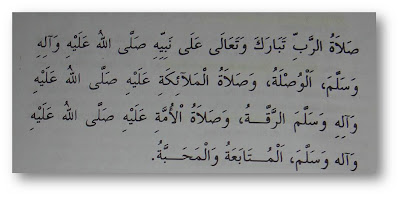 صَلَاةُ الرَّبِّ تَبَارَكَ وَتَعَالَى عَلَى نَبِيِّهِ صَلَّى اللهُ عَلَيْهِ وَآلِهِ
وَسَلَّمَ، اَلْوُصْلَةُ، وَصَلَاةُ الْمَلَائِكَةِ عَلَيْهِ صَلَّى اللهُ عَلَيْهِ
وَآلِهِ وَسَلَّمَ الرَّقَّـــةُ، وَصَلَاةُ الْأُمَّةِ عَلَيْهِ صَلَّى اللهُ عَلَيْهِ
وَآلِهِ وَسَلَّمَ، اَلْمُـــتَابَعَةُ وَالْمَحَـــبَّةُ.